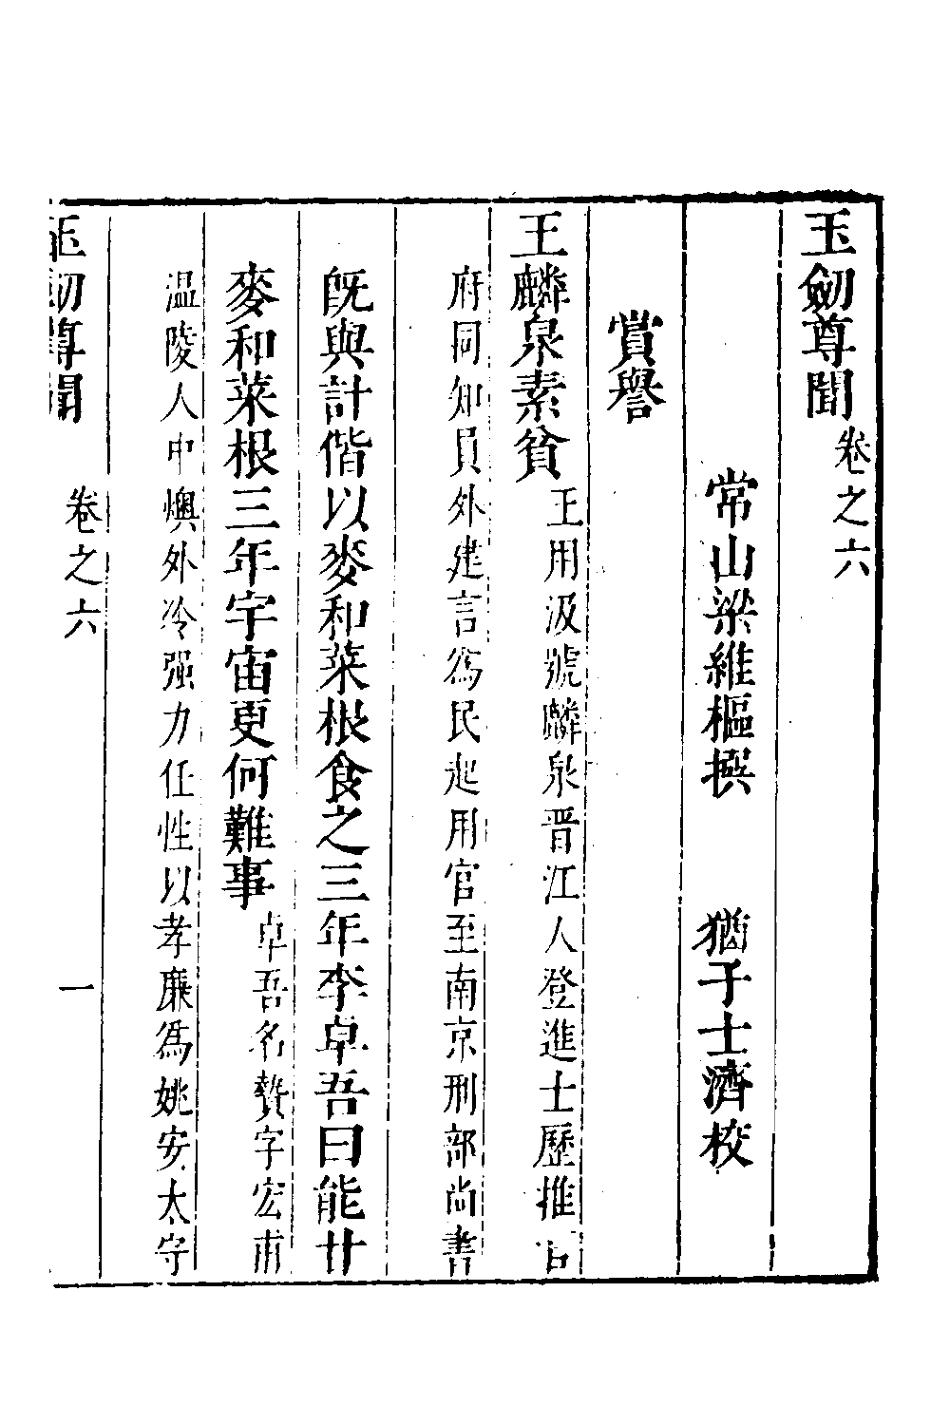 玉劒尊聞卷之六
常山梁維樞撰　猶子士濟校
賞譽
王麟泉素貧王用汲號麟泉晋江人登進士歷推官
府同知員外建言爲民起用官至南京刑部尚書
旣與計偕以麥和菜根食之三年李卓吾曰能廿
麥和菜根三年宇宙更何難事卓吾名贄字宏甫
温陵人中燠外冷强力任性以孝廉爲姚安太守
玉劒尊聞　卷之六　一